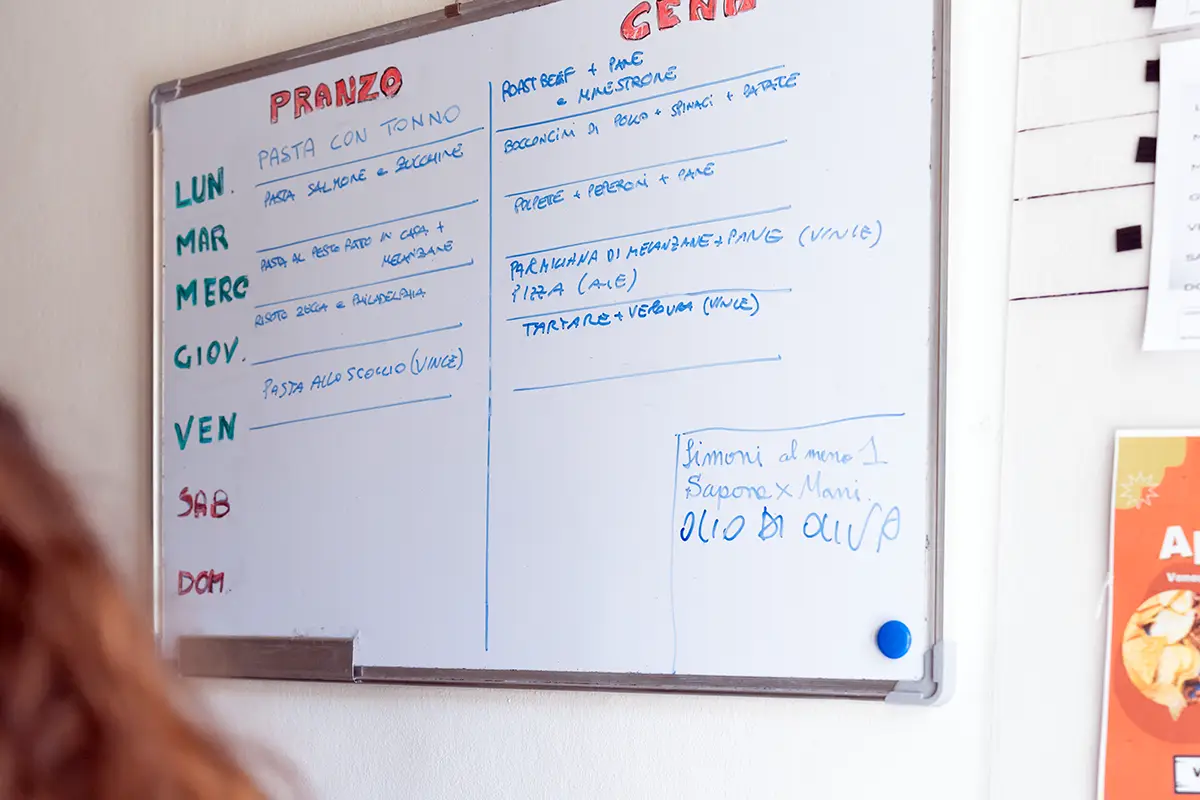 CENA
PRANZO
LUN.
MAR
MERC
GIOV.
VEN
SAB
DOM.
PASTA CON TONNO
PASTA SALMONE e ZUCCHINE
PASTA AL PESTO FATTO IN CASA +
MELANZANE
RISOTO ZUCCA e PHILADELPHIA
PASTA ALLO SCOGLIO (VINCE)
ROAST BEEF + PANE
e MINESTRONE
BOCCONCINI DI POLLO + SPINACI + PATATE
POLPETE + PEPERONI + PANE
PARMIGIANA DI MELANZANE + PANE (VINCE)
PIZZA (ALE)
TARTARE + VERDURA (VINCE)
Limoni al meno 1
Sapone x Mani.
OLIO DI OLIVA